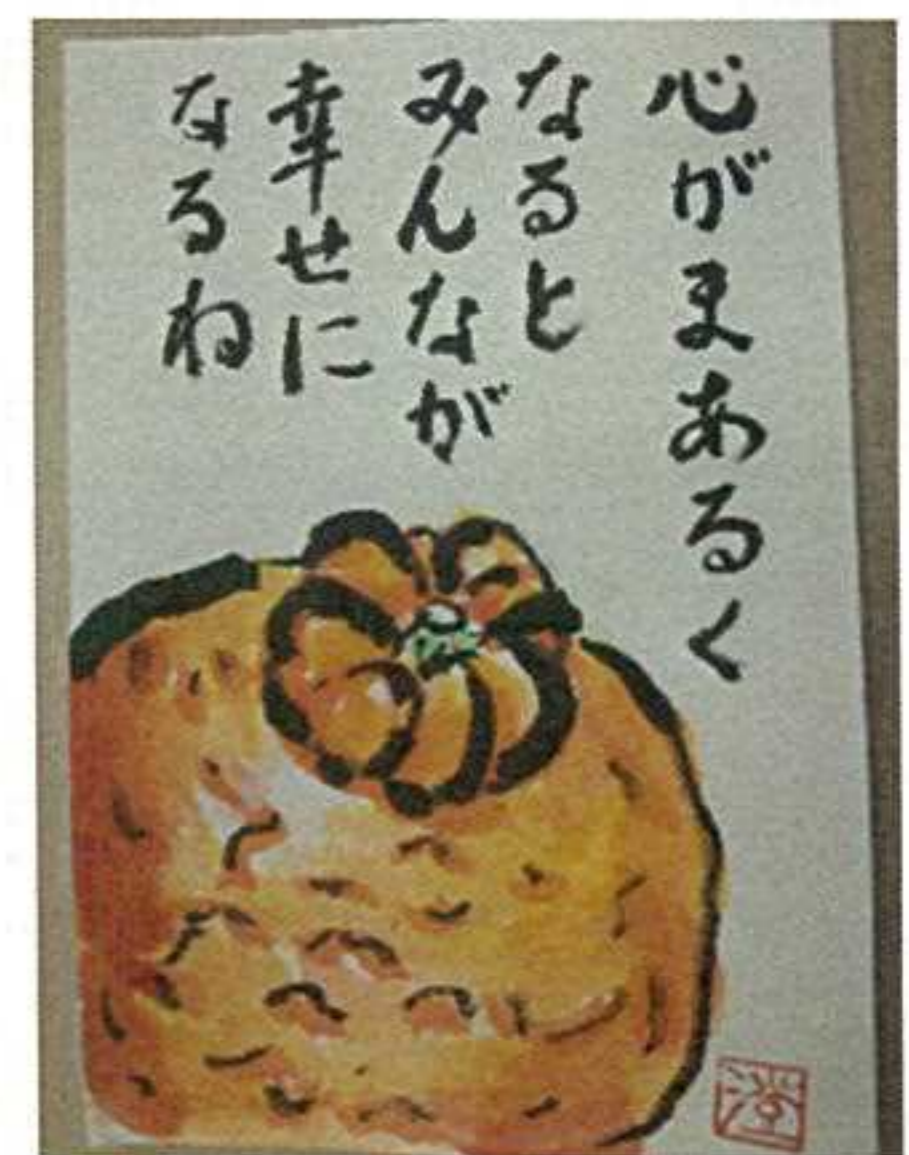 心がまあるく
なると
みんなが
幸せに
なるね